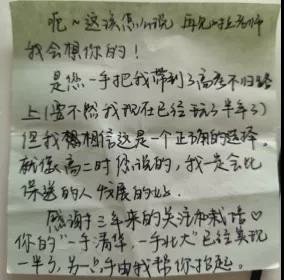 呃~这该怎么说 再见叶老师
我会想你的!
是您一手把我带到了高考不归路
上(要不然我现在已经玩了半年了)
但我想相信这是一个正确的选择.
就像高二时你说的,我一定会比
保送的人发展的好.
感谢三年来的关注和栽培♡
你的"一手清华一手北大"已经实现
一半了,另一只手由我帮你撑起.